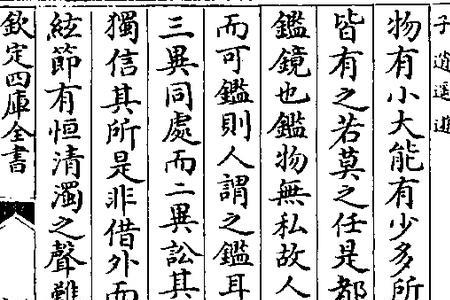 子逍遥遊
物有小大能有少多所
皆有之若莫之任是都
鑑鏡也鑑物無私故人
而可鑑則人謂之鑑耳
三異同處而二異訟其
獨信其所是非借外而
絃節有恒清濁之聲難
欽定四庫全書